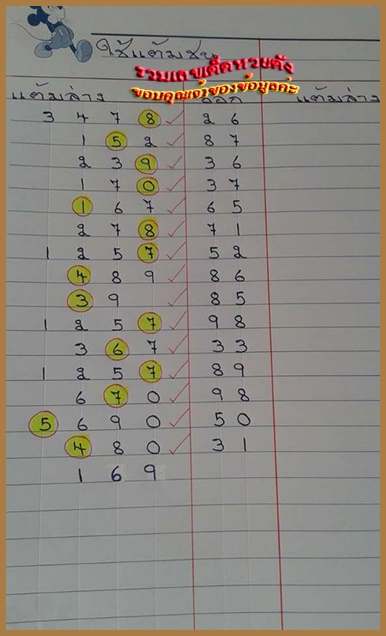 ใช้แต้มชน
รวมเลขเด็ดหวยดัง
ขอบคุณเจ้าของข้อมูลค่ะ
แต้มล่าง ออก แต้มล่าง
3 4 7 8 ✓ 2 6
1 5 2 ✓ 8 7
2 3 9 ✓ 3 6
1 7 0 ✓ 3 7
1 6 7 ✓ 6 5
2 7 8 ✓ 7 1
1 2 5 7 ✓ 5 2
4 8 9 ✓ 8 6
3 9 ✓ 8 5
1 2 5 7 ✓ 9 8
3 6 7 ✓ 3 3
1 2 5 7 ✓ 8 9
6 7 0 ✓ 9 8
5 6 9 0 ✓ 5 0
4 8 0 ✓ 3 1
1 6 9